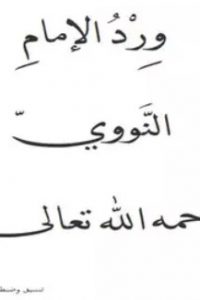 وِرْدُ الإِمامِ
النَّوويّ
حمه الله تعالى
تنسيق وضبط